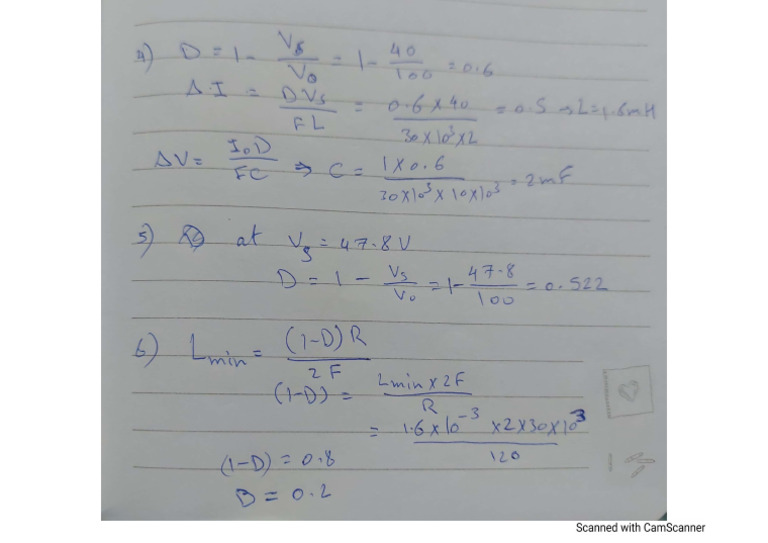 4) D = 1 - Vs/Vo = 1 - 40/100 = 0.6
ΔI = DVs/FL = 0.6 x 40/30x10³xL = 0.5 → L = 1.6mH
ΔV = IoD/FC ⇒ C = 1 x 0.6/30x10³ x 10x10³ = 2mF
5) at Vs = 47.8 V
D = 1 - Vs/Vo = 1 - 47.8/100 = 0.522
6) Lmin = (1-D) R/2F
(1-D) = Lmin x 2F/R
= 1.6 x 10⁻³ x 2 x 30 x 10³/120
(1-D) = 0.8
D = 0.2
Scanned with CamScanner